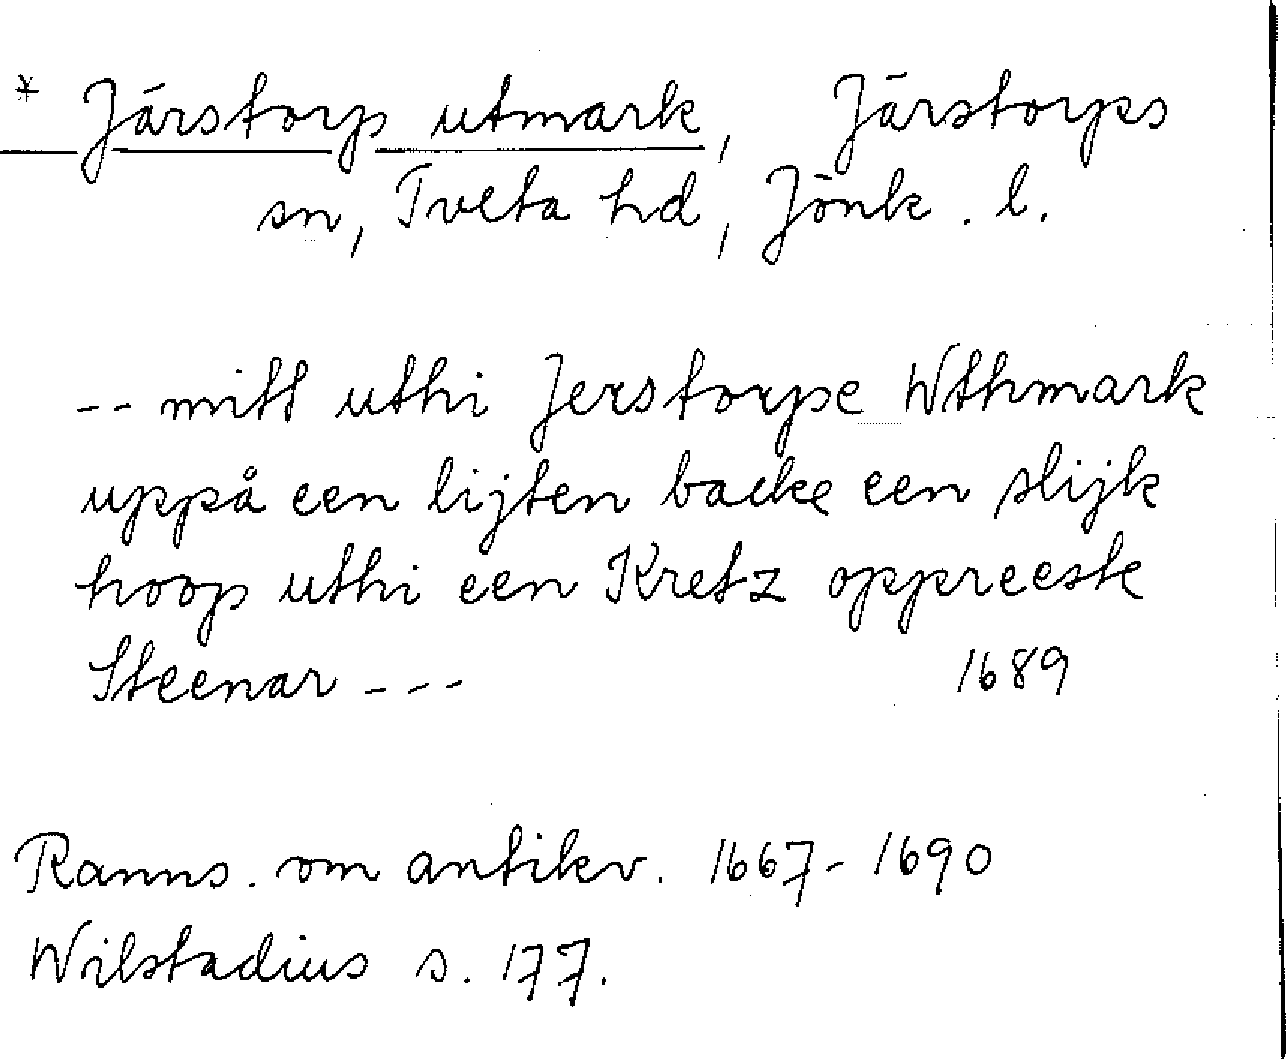 * Järstorp utmark, Järstorps
sn, Tveta hd, Jönk. l.
-- mitt uthi Jerstorpe Wthmark
uppå een lijten backe een slijk
hoop uthi een Kretz oppreeste
Steenar --- 1689
Ranns. om antikv. 1667-1690
Wilstadius s. 177.